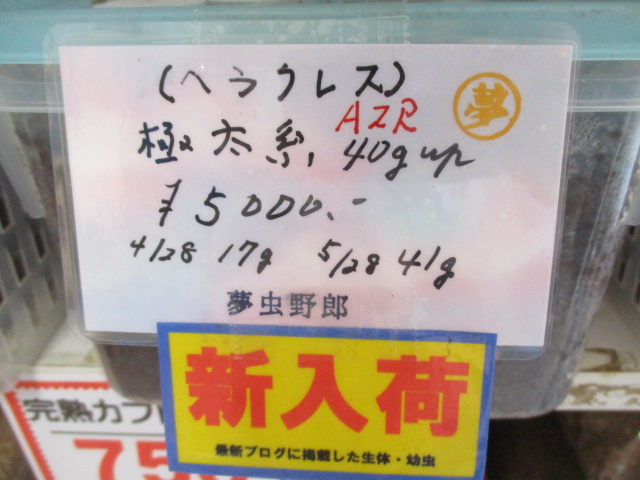 (ヘラクレス)
夢
AZR
極太系, 40gup
¥5000.-
4/28 17g 5/28 41g
夢虫野郎
新入荷
最新ブログに掲載した生体・幼虫
完熟カブ
75